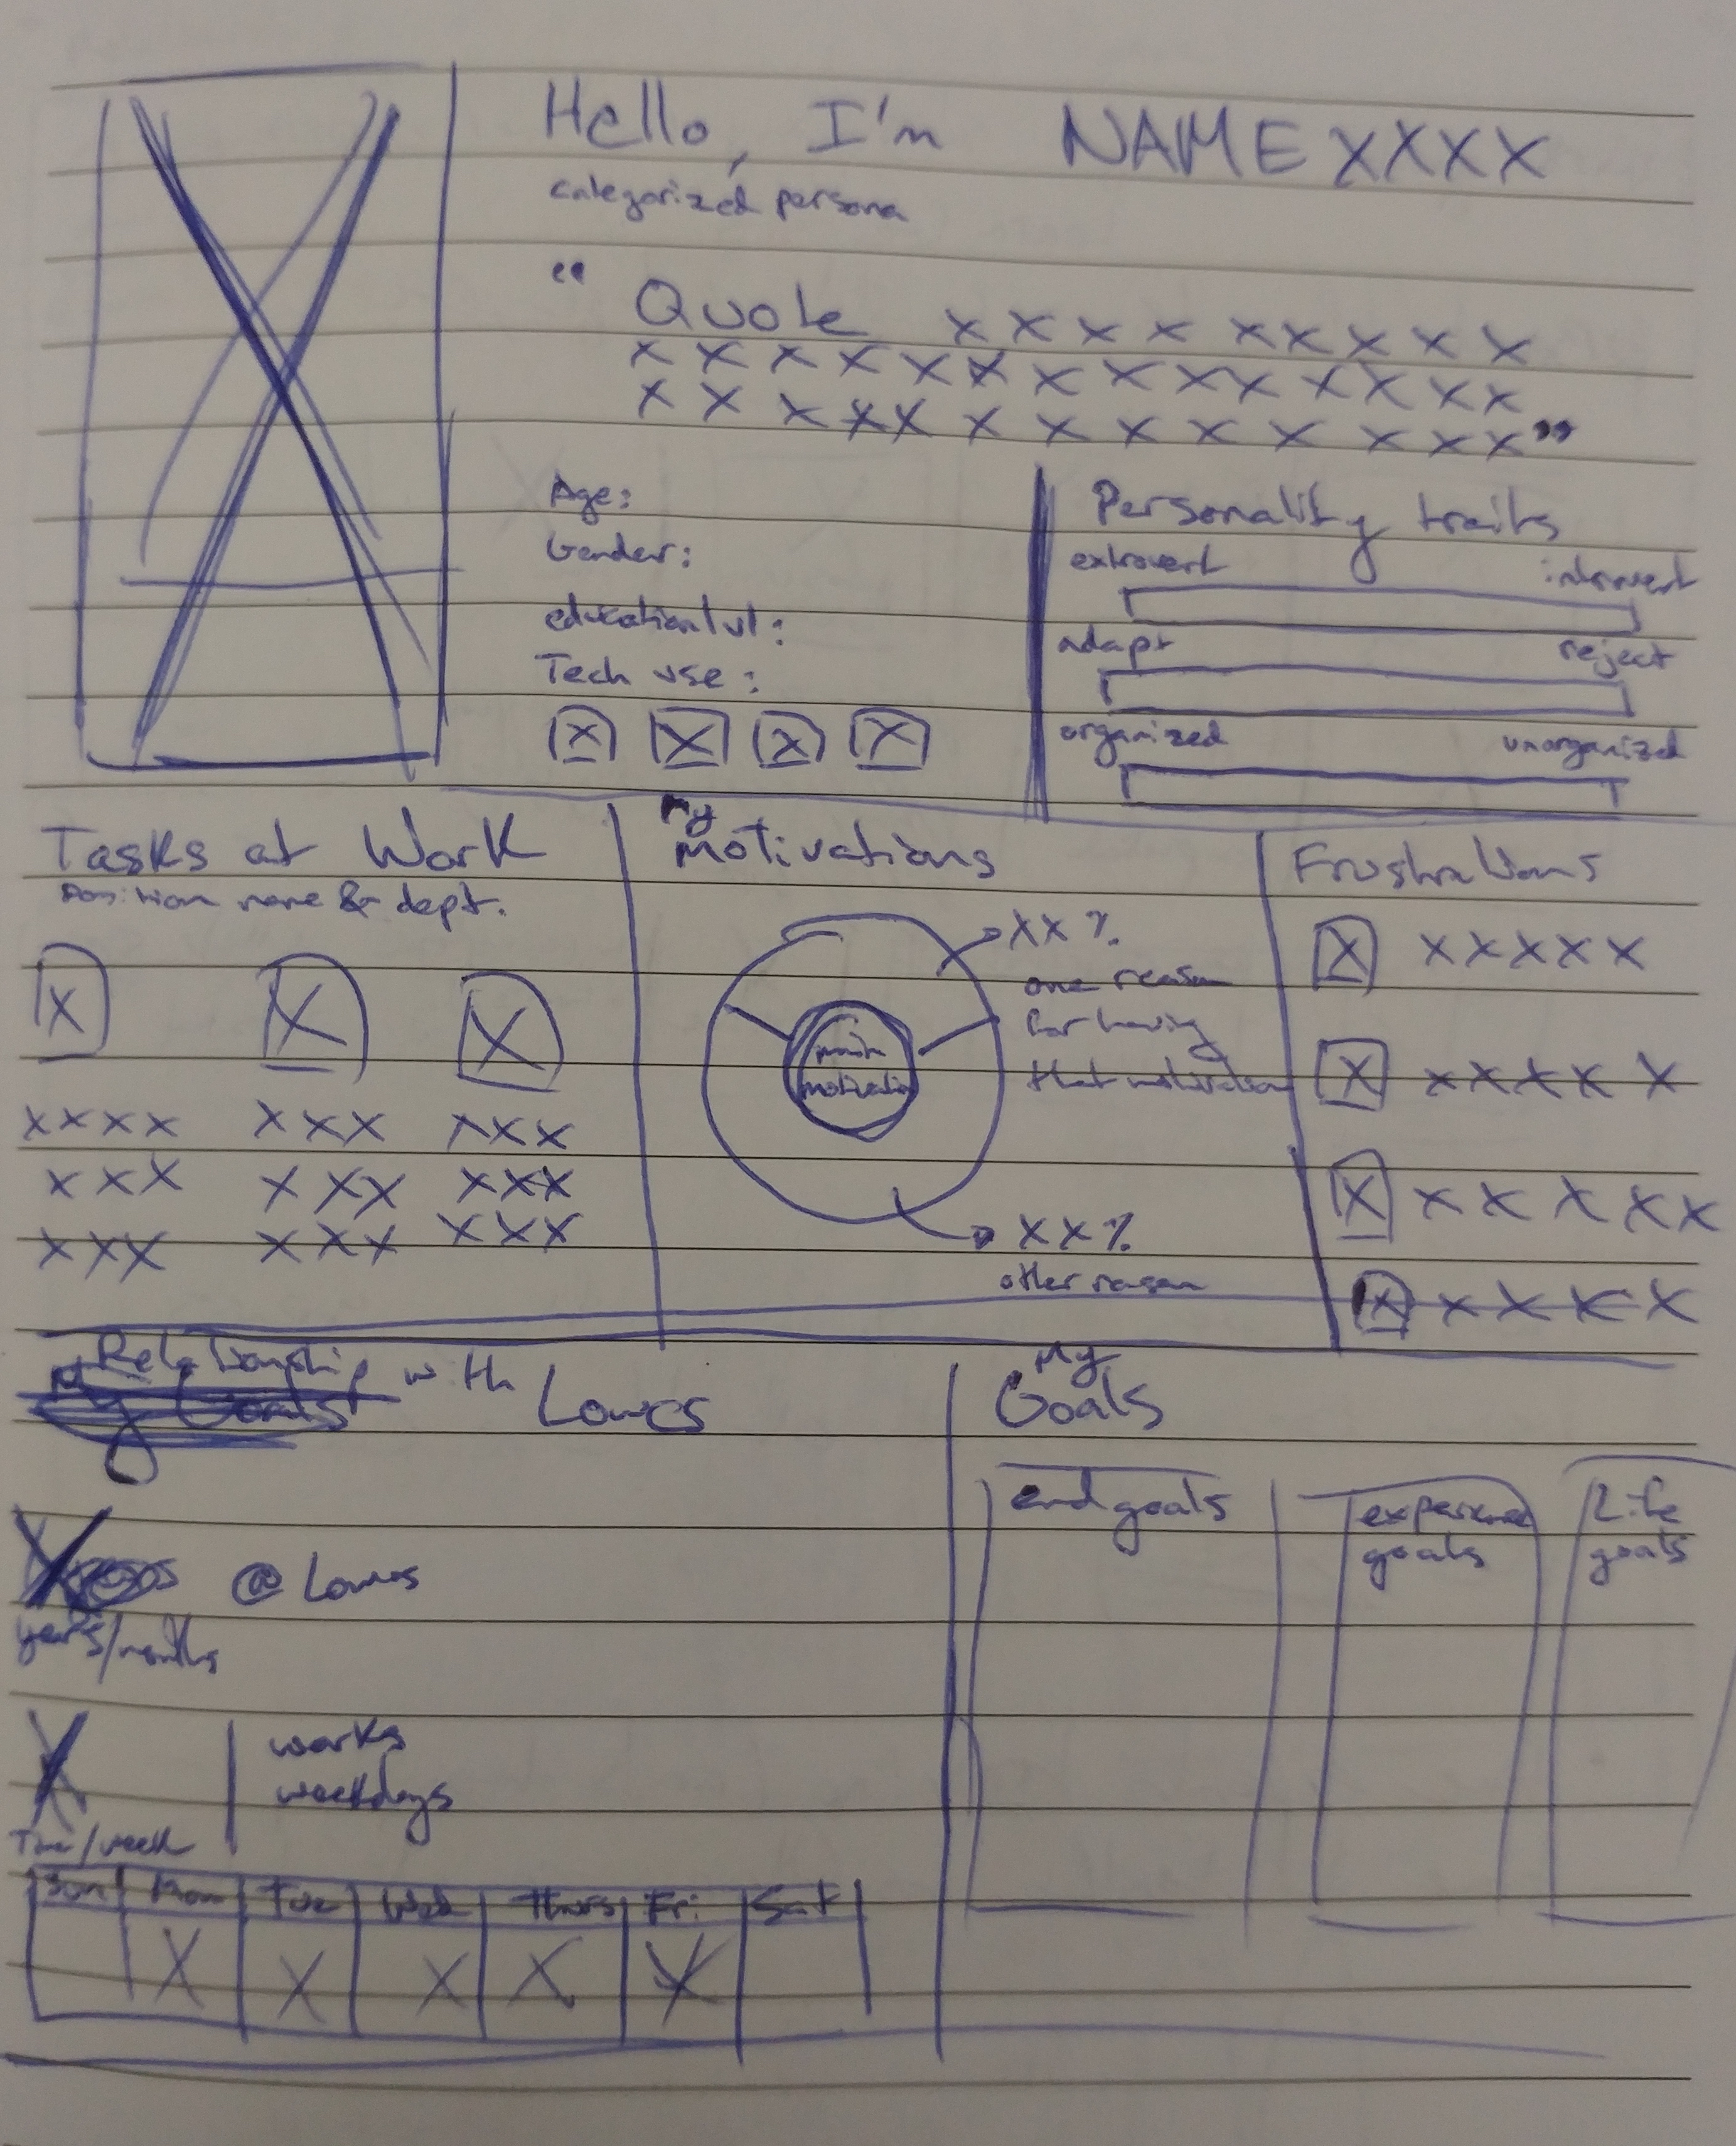 Hello, I'm NAME XXXX
categorized persona
" Quote x x x x x x x x x
x x x x x x x x x x x x x
x x x x x x x x x x x x x "
Age:
Gender:
education lvl:
Tech use:
x x x x
Personality traits
extrovert introvert
adapt reject
organized unorganized
Tasks at Work
Position name & dept.
X X X
xxxx xxx xxx
xxx xxx xxx
xxx xxx xxx
My
Motivations
main
motivation
XX %
one reason
for having
that motivation
XX %
other reason
Frustrations
X XXXXX
X XXXXX
X XXXXX
X XXXX
Relationship with Lowes
My Goals
X @ Lowes
years/months
X works
weekdays
Time/week
Sun Mon Tue Wed Thurs Fri Sat
X X X X X
My
Goals
end goals
experience
goals
Life
goals